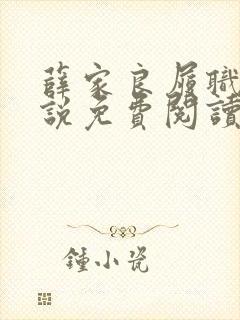 薛家良履職
說免費閱讀
鍾小瓷